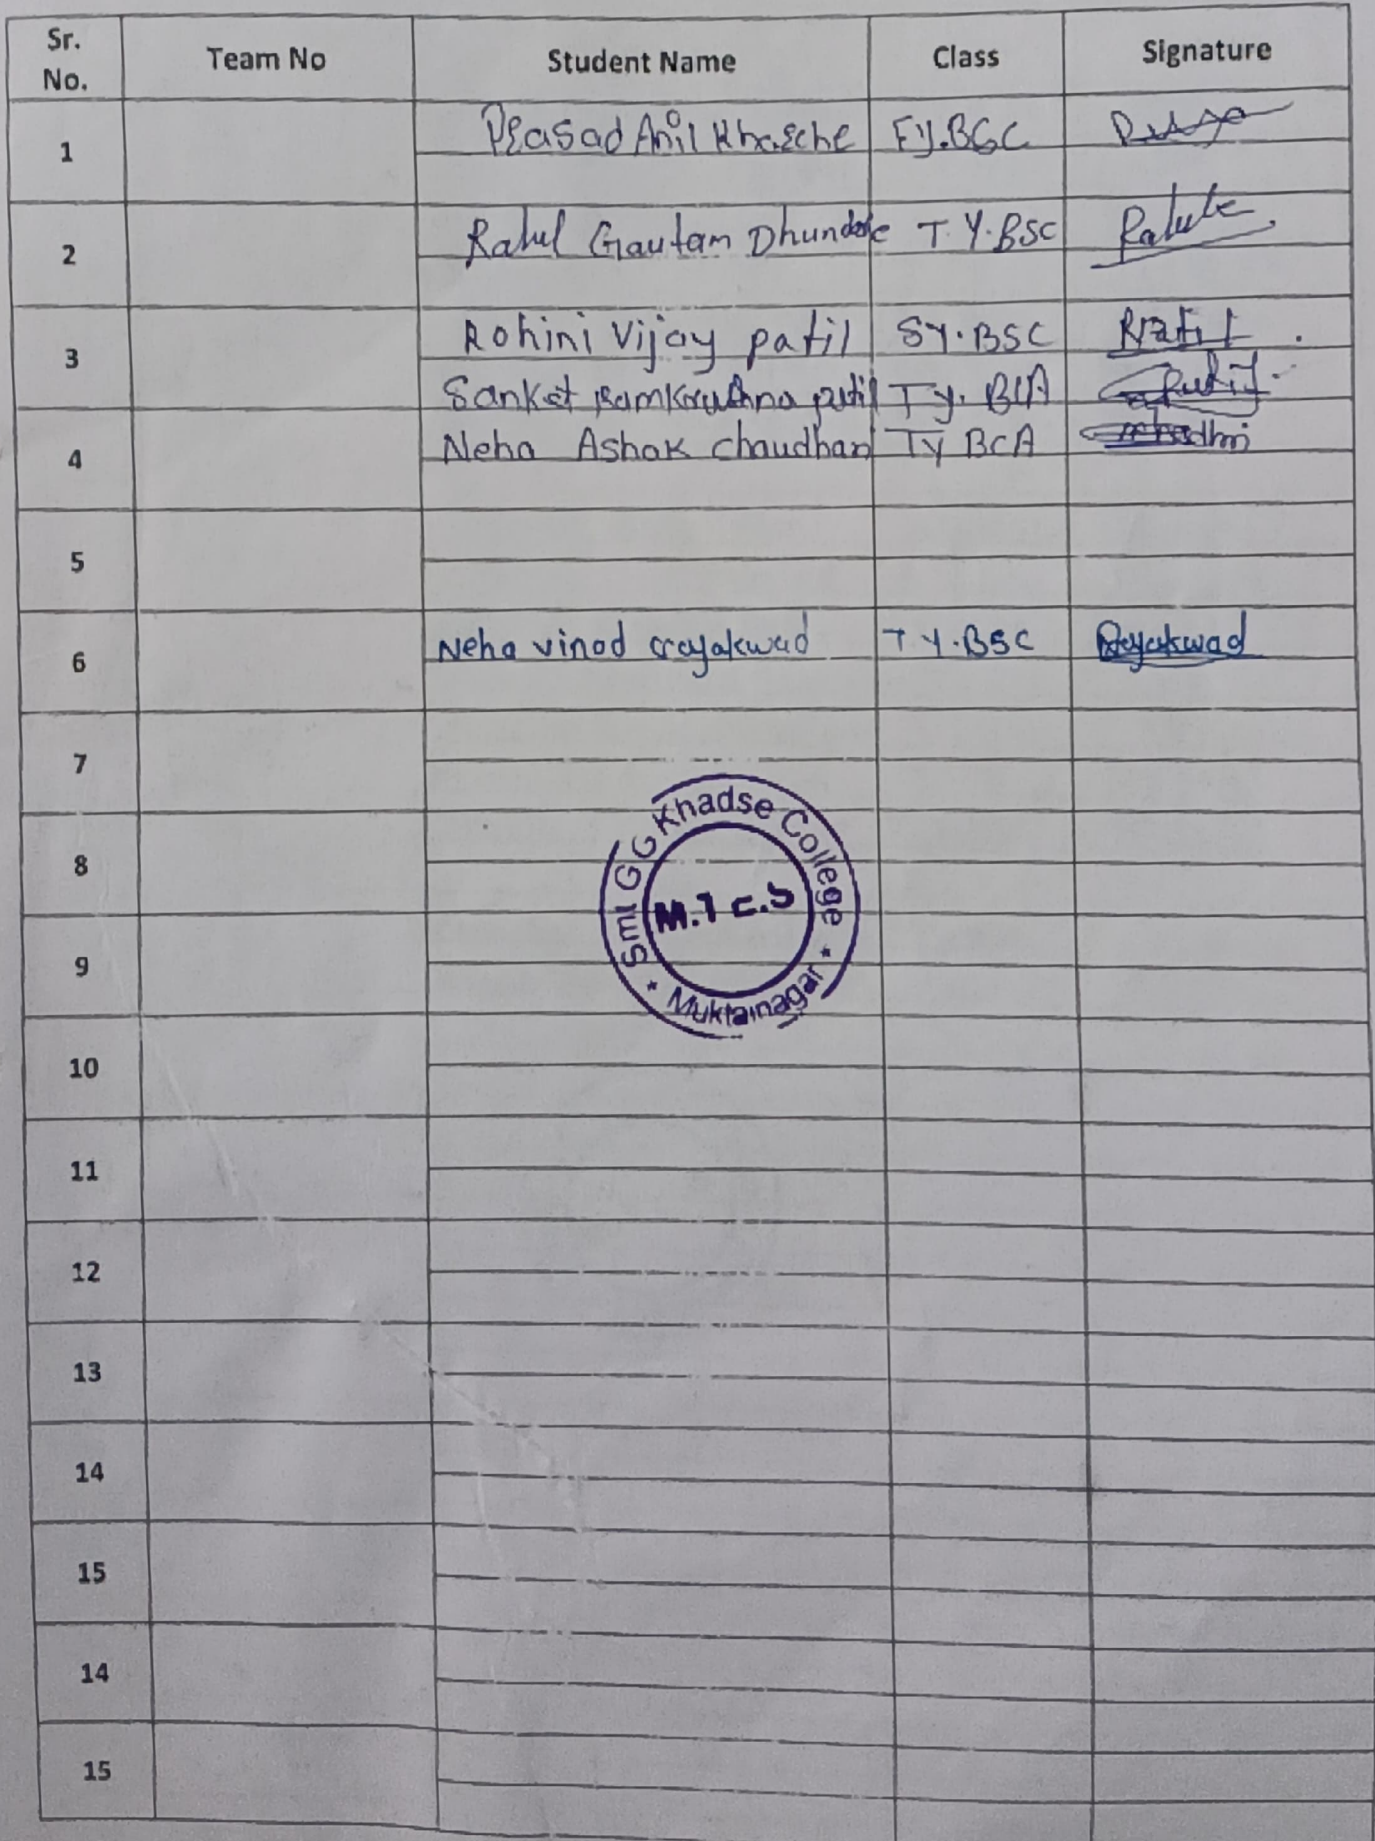 Sr. No. Team No Student Name Class Signature
1 Prasad Anil Kharche F.Y.BSC
2 Rahul Gautam Dhundale T.Y.BSC
3 Rohini Vijay patil SY.BSC RPatil
Sanket Ramkrushna patil T.y. BCA
4 Neha Ashok chaudhari TY BCA
5
6 Neha vinod Gayakwad T.Y.BSC Gayakwad
7
Smt G G Khadse College
8
M.I C.S
9
* Muktainagar *
10
11
12
13
14
15
14
15